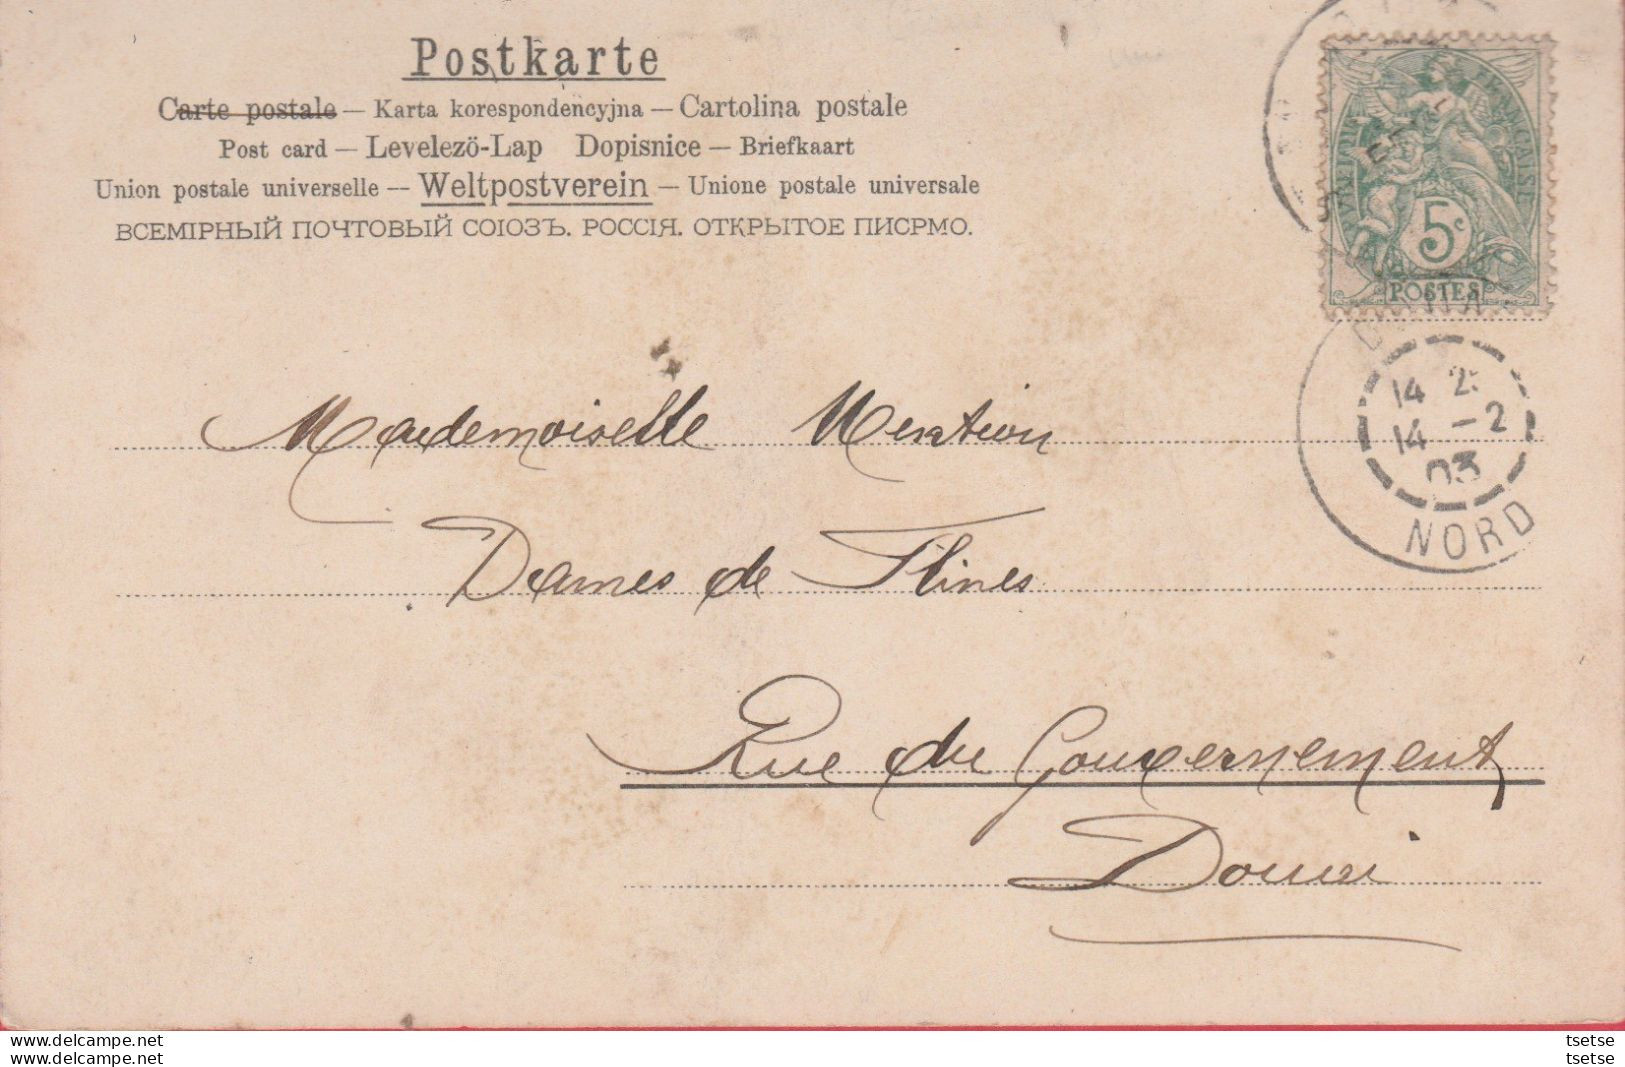 Postkarte
Carte postale — Karta korespondencyjna — Cartolina postale
Post card — Levelezö-Lap Dopisnice — Briefkaart
Union postale universelle — Weltpostverein — Unione postale universale
ВСЕМІРНЫЙ ПОЧТОВЫЙ СОЮЗЪ. РОССІЯ. ОТКРЫТОЕ ПИСРМО.
5c
POSTES
14 2
14 -2
03
NORD
Mademoiselle
Dames de Flines
Rue du Gouvernement
Douai
www.delcampe.net
www.delcampe.net
tsetse
tsetse